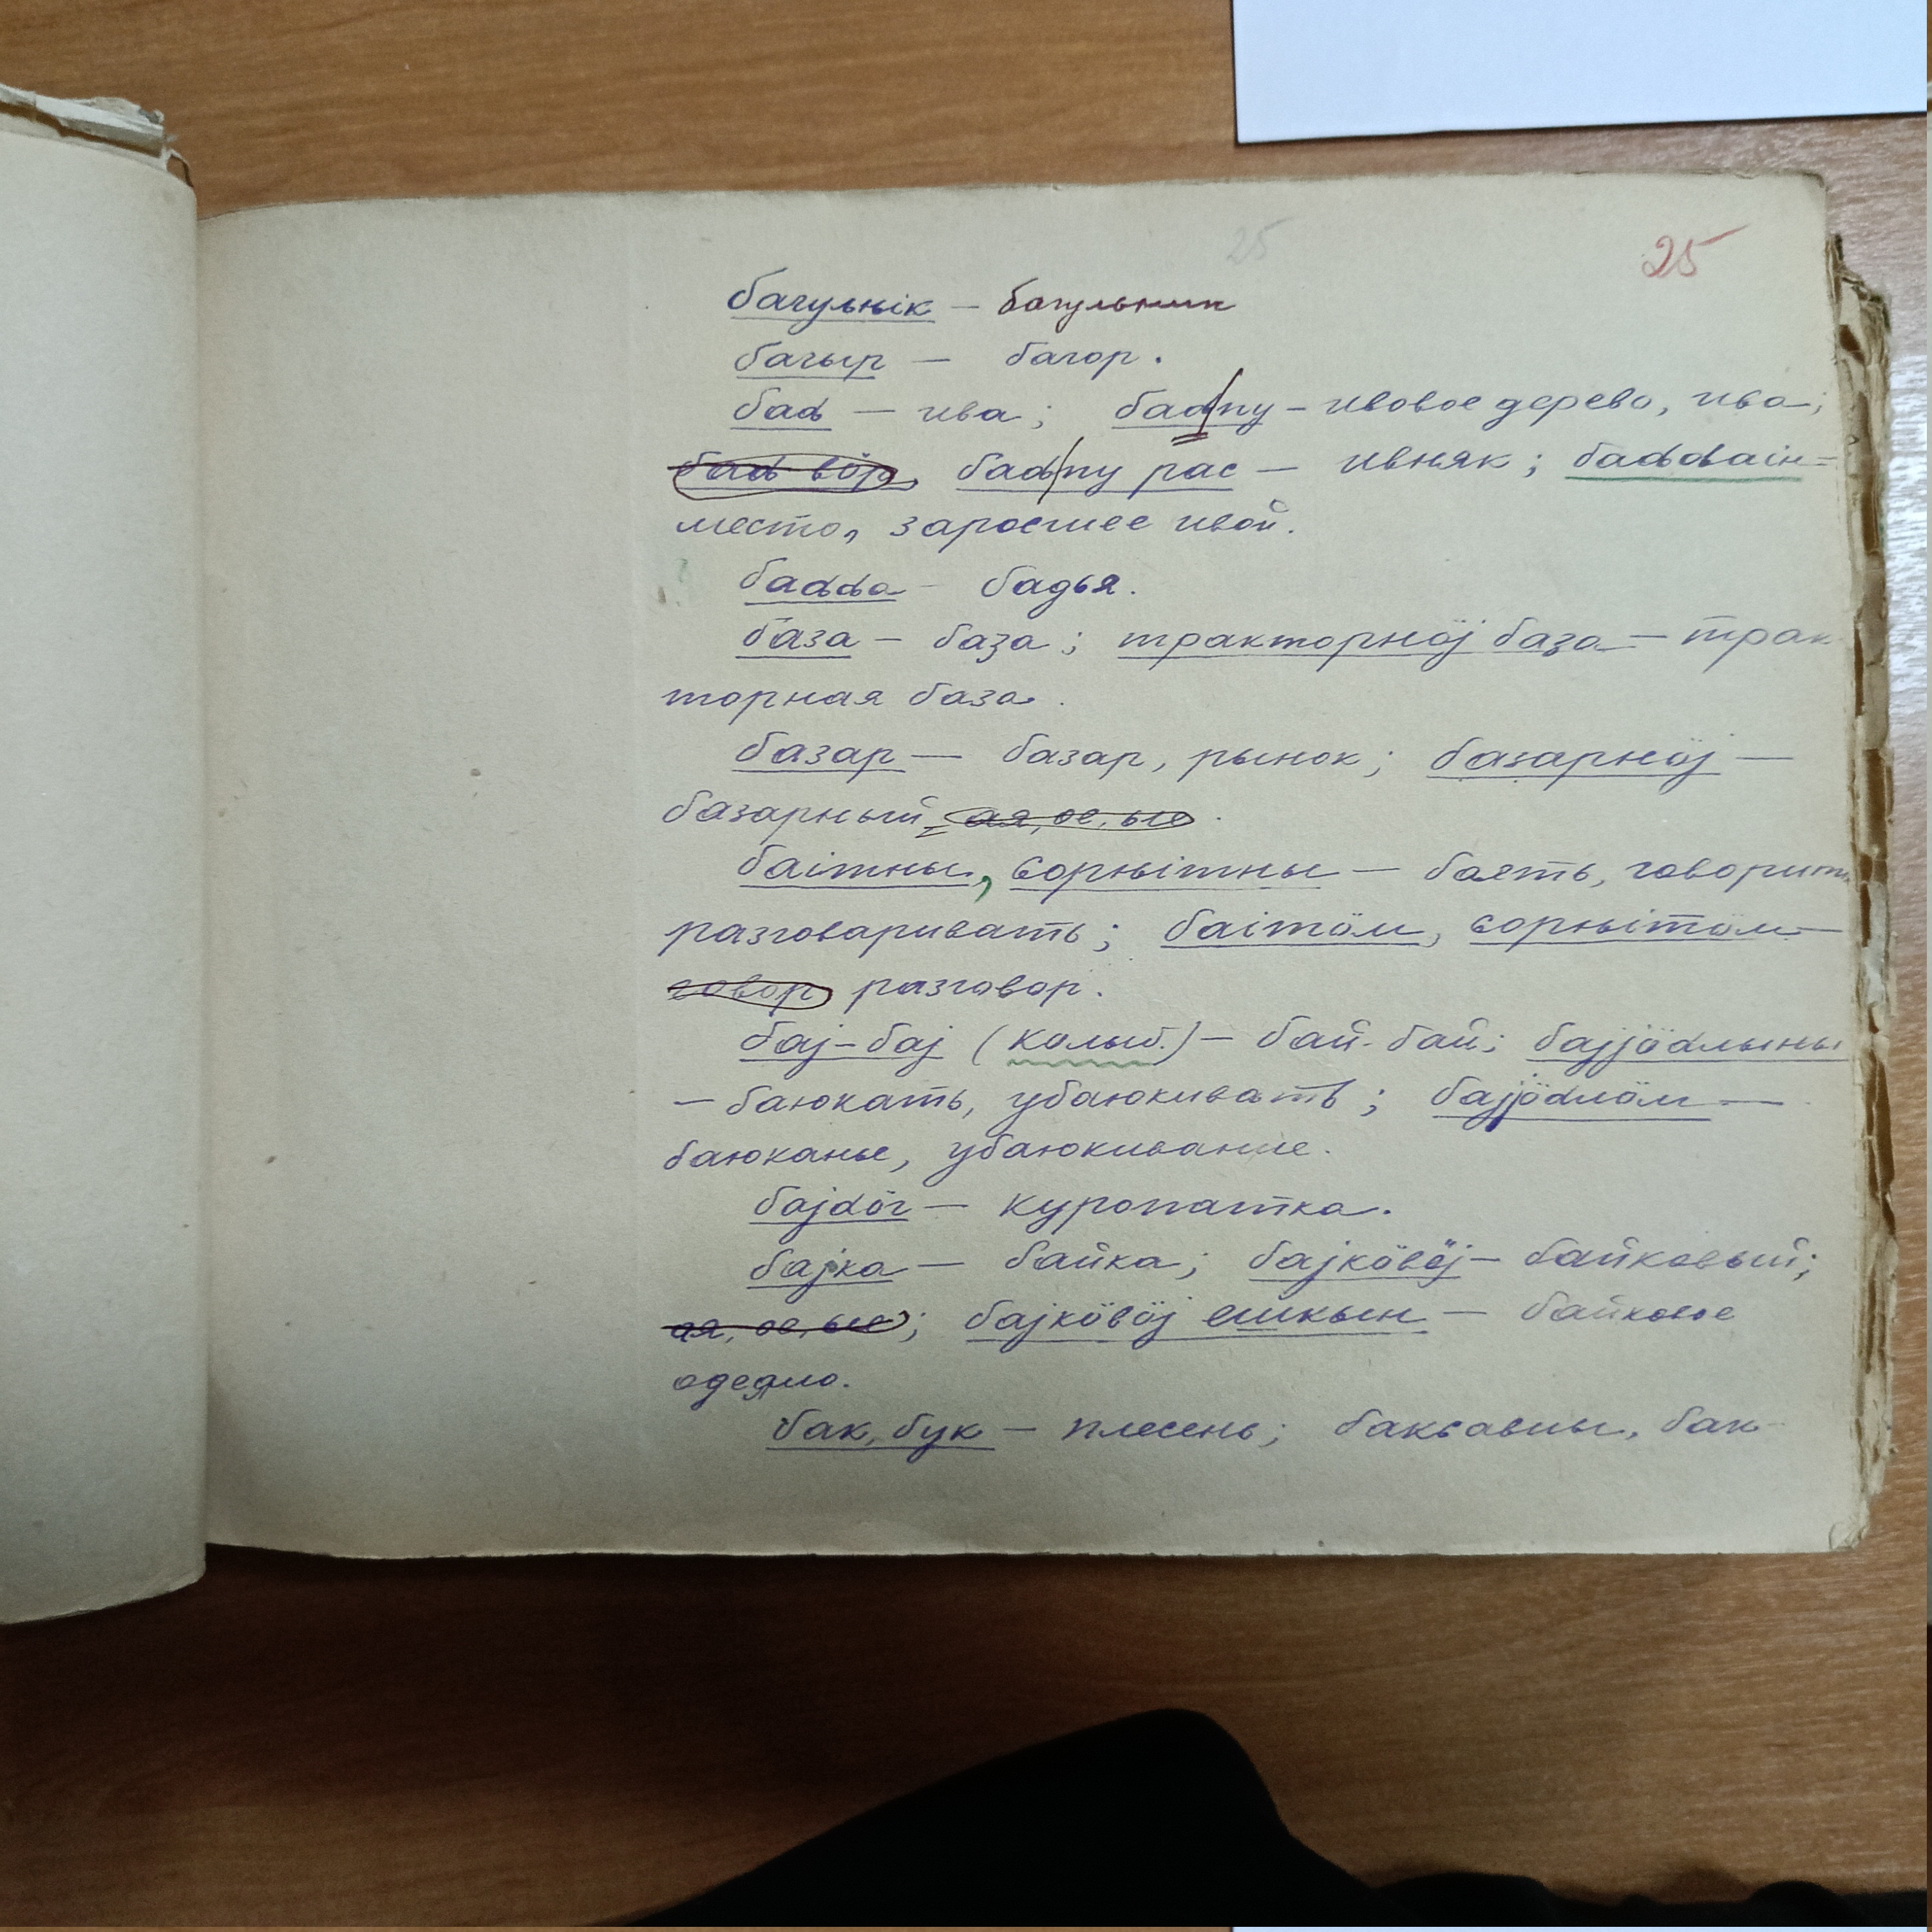 25 25
багуԉњік — багульник
багыр — багор.
баԃ — ива; баԃпу — ивовое дерево, ива;
баԃ вӧр, баԃпу рас — ивняк; баԃԃаін =
место, заросшее ивой.
баԃԃа — бадья.
база — база; тракторнӧј база — трак
торная база.
базар — базар, рынок; базарнӧј —
базарный, ая, ое, ые.
баітны, сорԋітны — баять, говорить
разговаривать; баітӧм, сорԋітӧм —
говор разговор.
бај-бај (колыб.) — бай-бай; бајјӧdлыны
— баюкать, убаюкивать; бајјӧdлӧм —
баюканье, убаюкивание.
бајdӧг — куропатка.
бајка — байка; бајкӧвӧј — байковый;
ая, ое, ые; бајкӧвӧј ешкын — байковое
одеяло.
бак, бук — плесень; баксавны, бак-